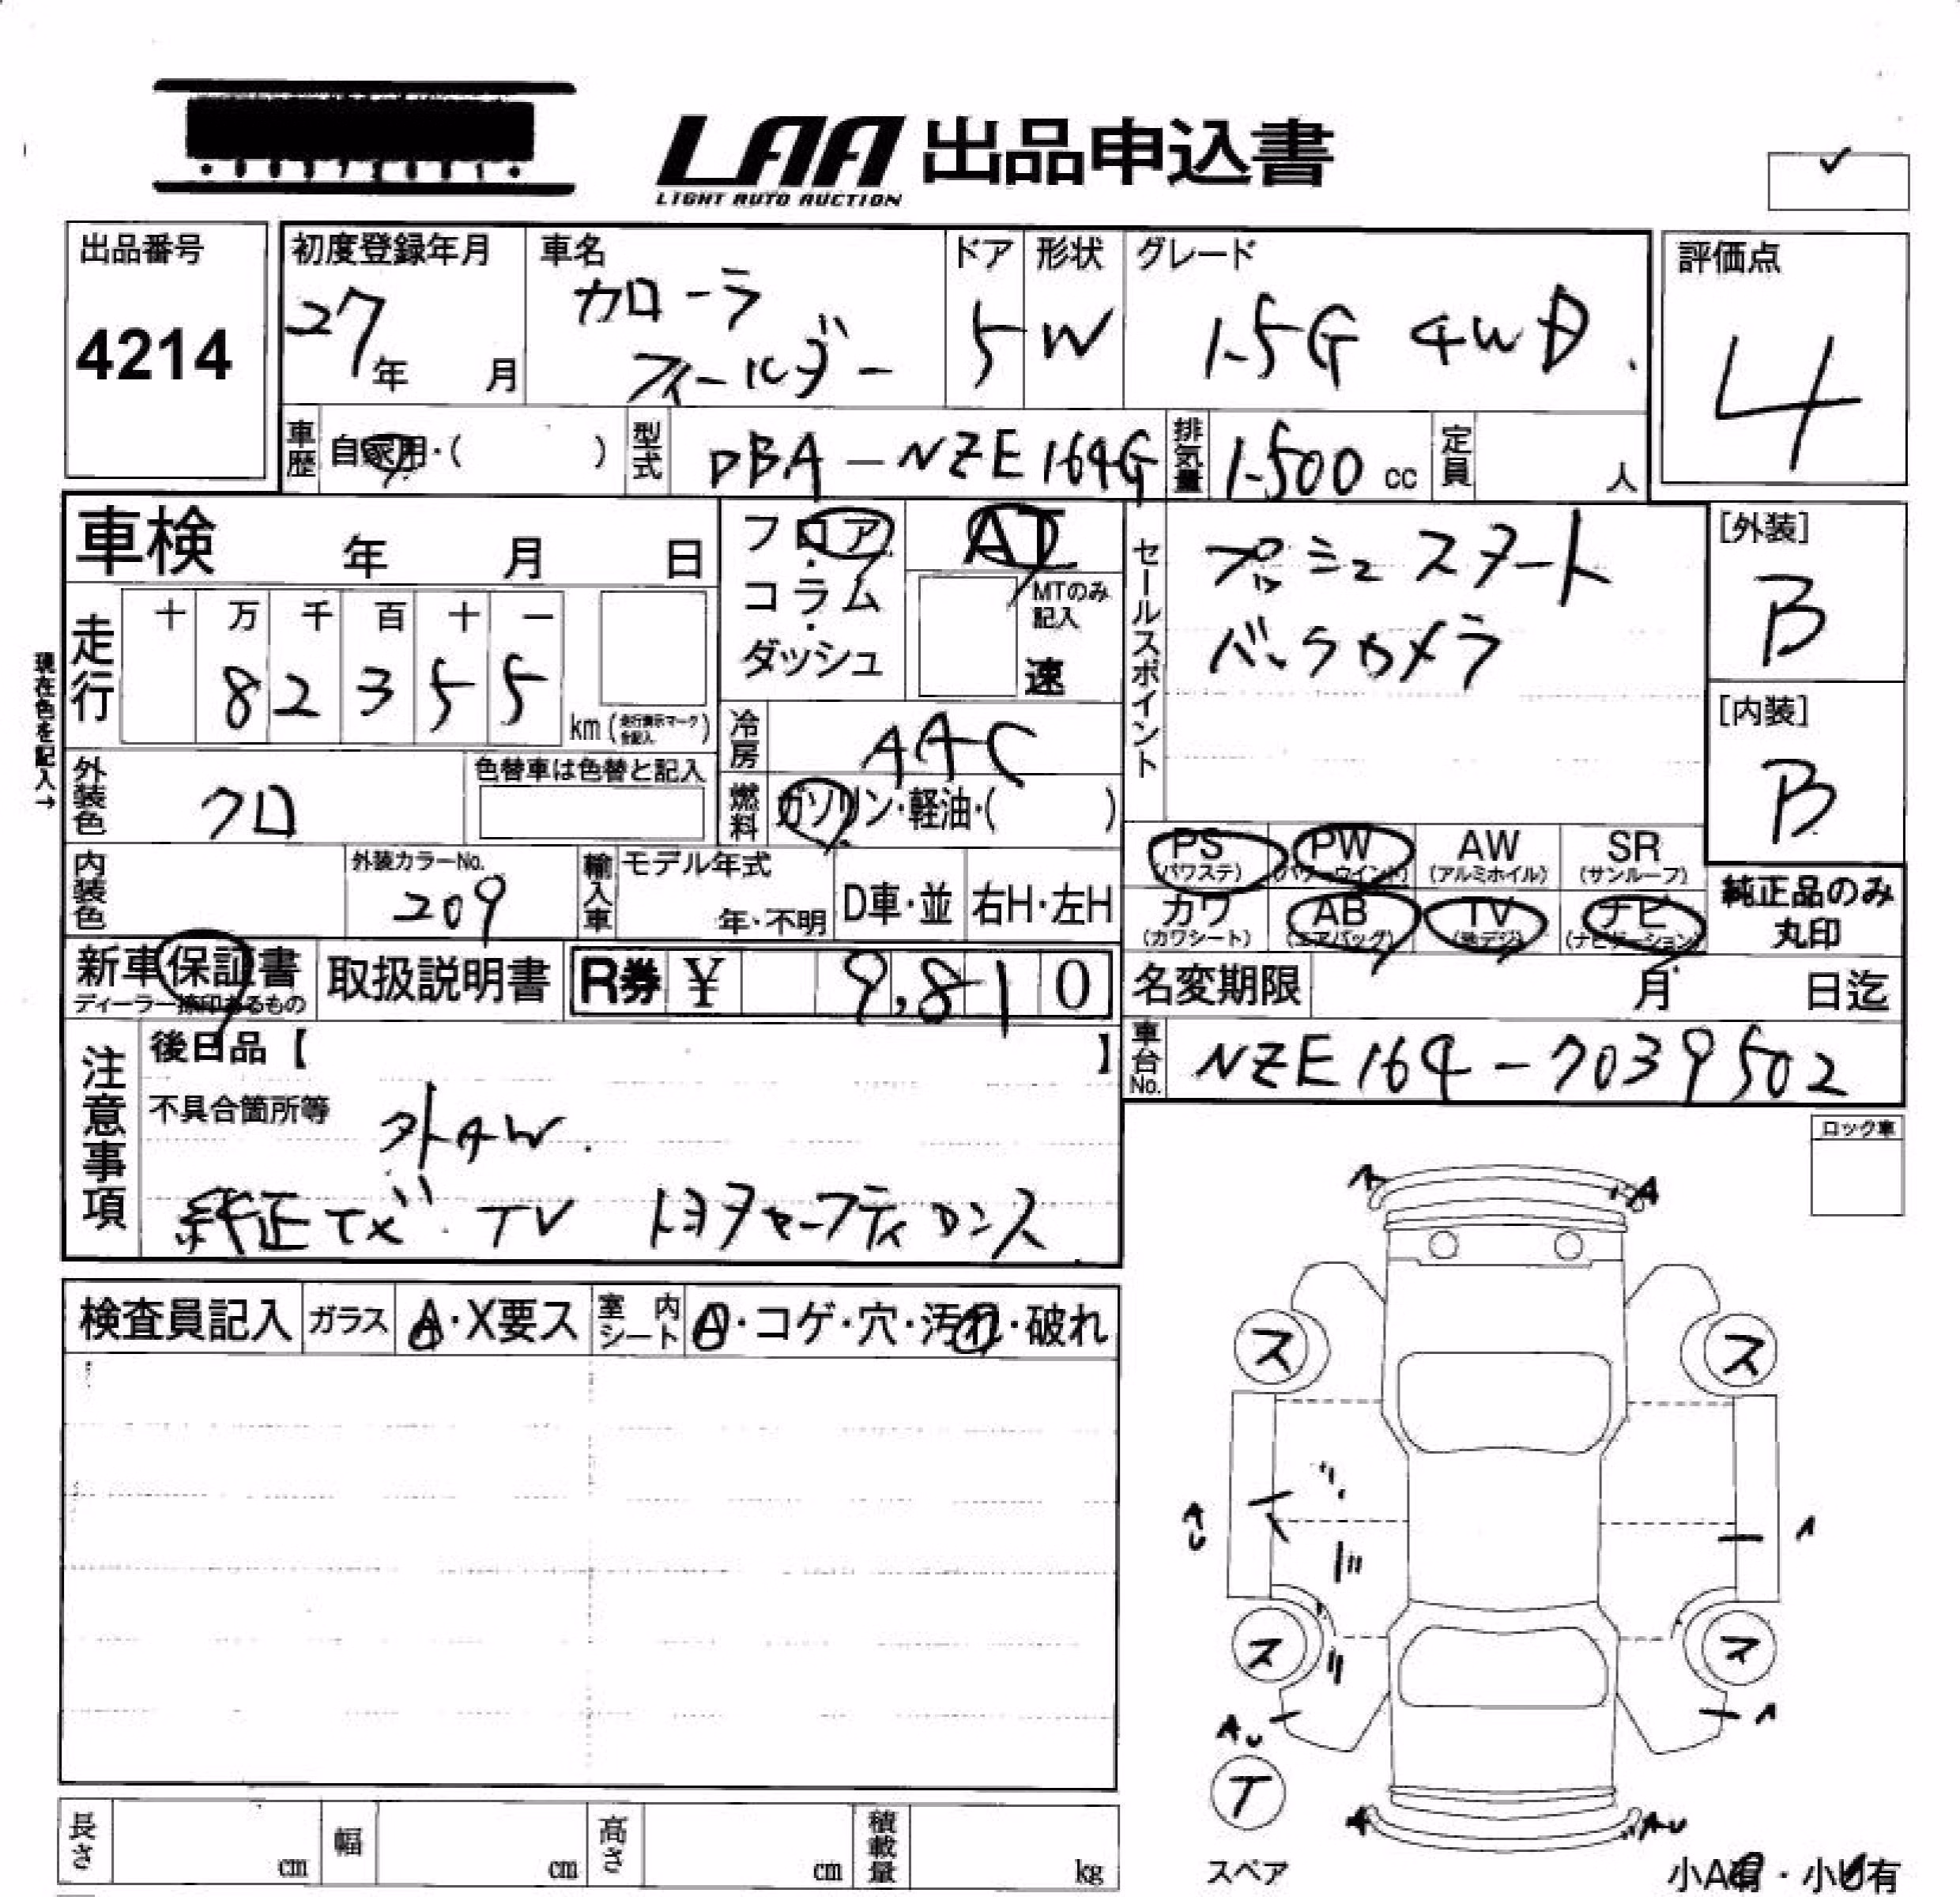 LAA 出品申込書
LIGHT AUTO AUCTION
✓
出品番号
4214
初度登録年月
27年 月
車名
カローラ
フィールダー
ドア
5
形状
W
グレード
1.5G 4WD
評価点
4
車歴 自家用・( )
型式 DBA-NZE164G
排気量 1500 cc
定員 人
車検 年 月 日
フロア・
コラム・
ダッシュ
AT
MTのみ
記入
速
セールスポイント
プッシュスタート
バックカメラ
[外装]
B
[内装]
B
現在色を記入→
走行
十 万 千 百 十 一
8 2 3 5 5
km (走行表示マーク
を記入)
冷房 AAC
外装色 クロ
色替車は色替と記入
燃料 ガソリン・軽油・( )
内装色
外装カラーNo.
209
輸入車 モデル年式
年・不明
D車・並
右H・左H
PS
(パワステ)
PW
(パワーウインド)
AW
(アルミホイル)
SR
(サンルーフ)
カワ
(カワシート)
AB
(エアバッグ)
TV
(地デジ)
ナビ
(ナビゲーション)
純正品のみ
丸印
新車保証書
ディーラー捺印あるもの
取扱説明書
R券 ¥ 9,810
名変期限 月 日迄
車台No. NZE164-7039502
注意事項
後日品【 】
不具合箇所等
外AW.
純正ナビ TV トヨタセーフティセンス
ロック車
検査員記入 ガラス A・X要ス
室内シート A・コゲ・穴・汚れ・破れ
A
A
ス
ス
AU
A
ス
ス
AU
A
T
A
AU
スペア
長さ cm
幅 cm
高さ cm
積載量 kg
小A有・小U有